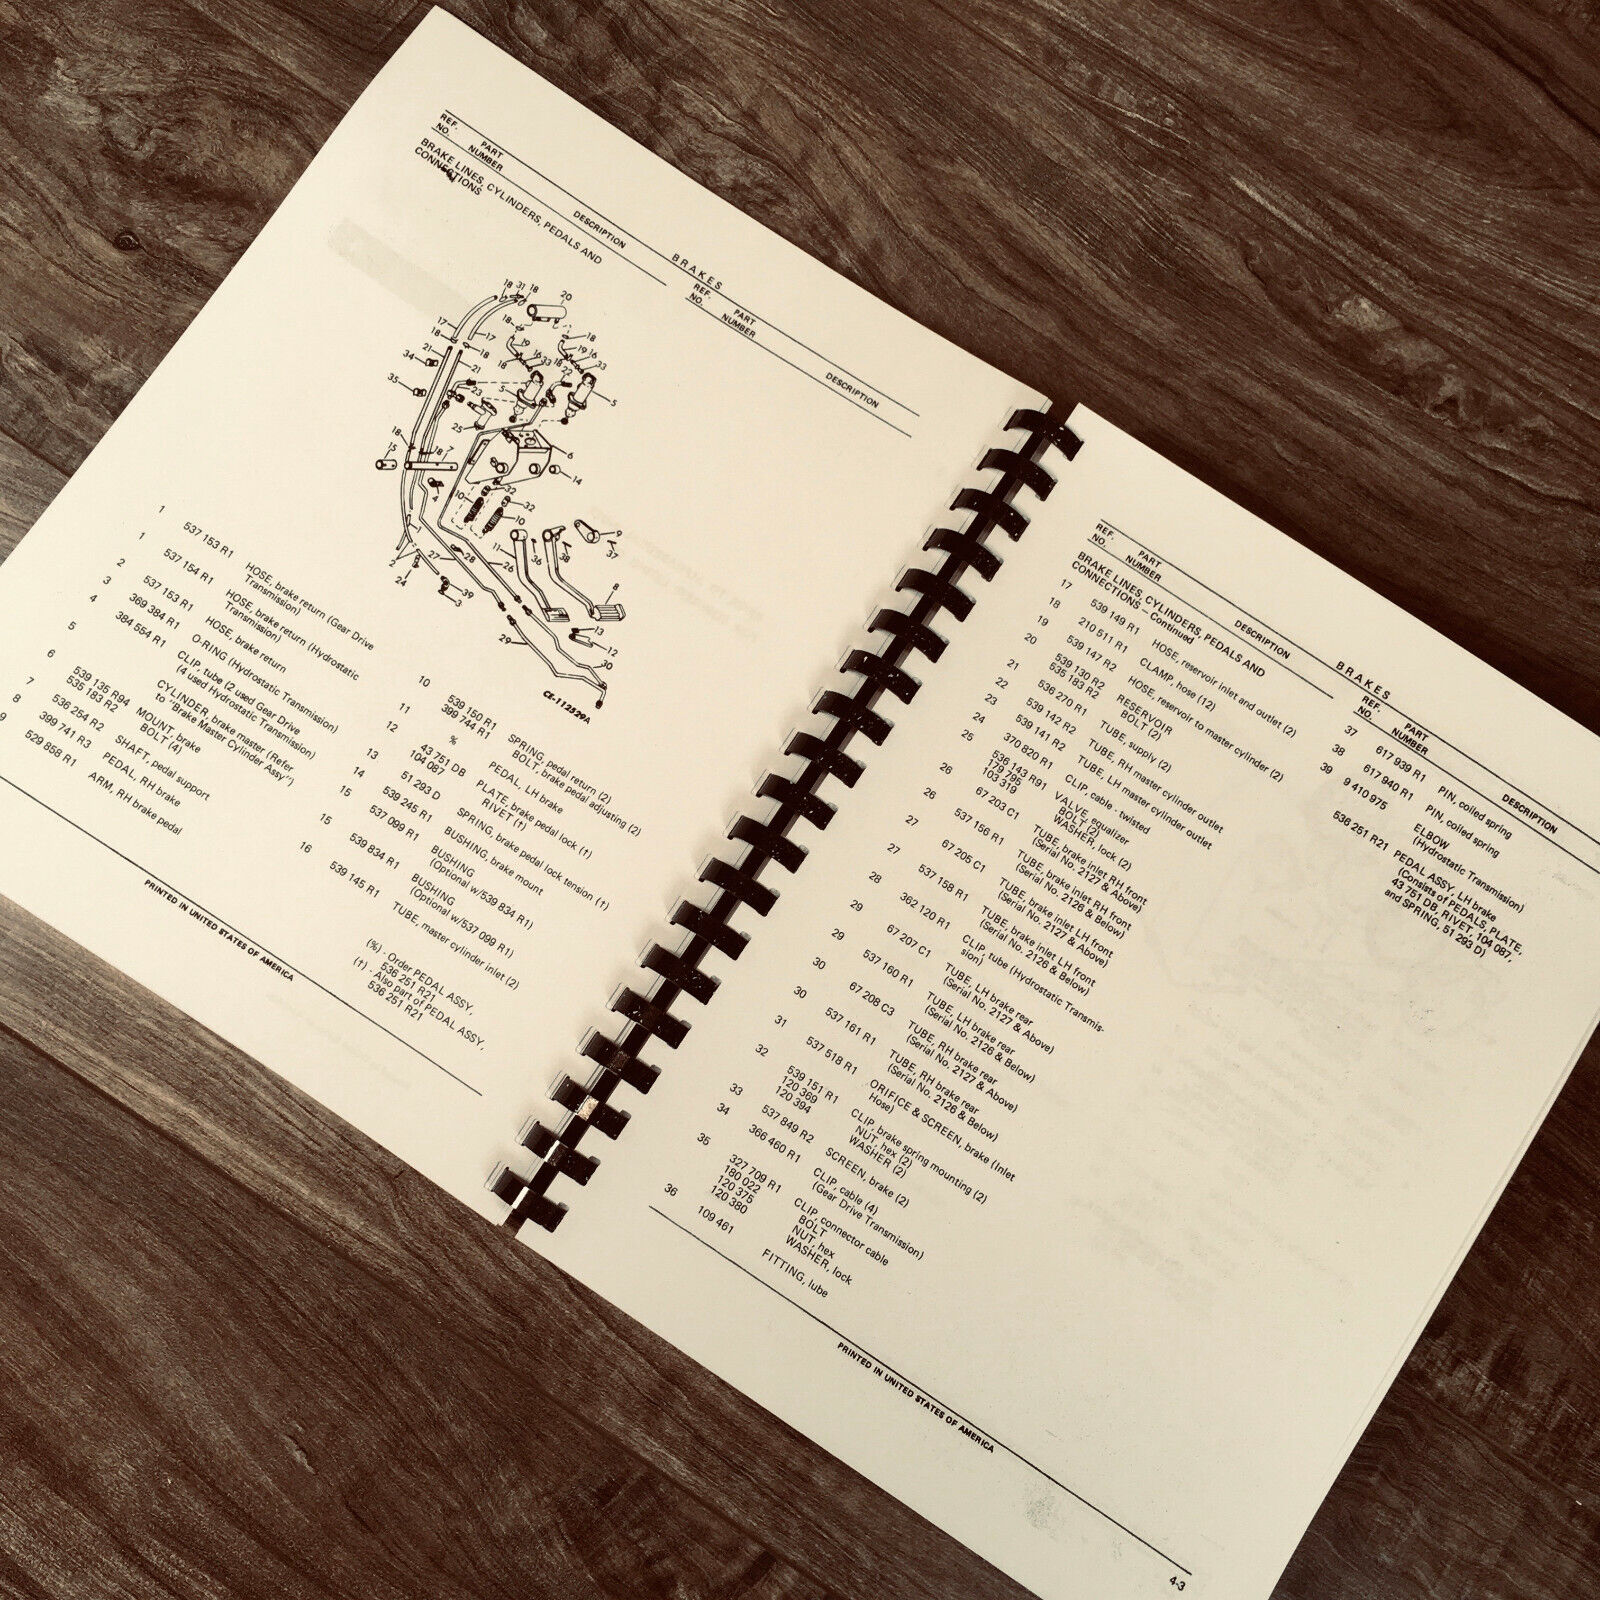 BRAKES
REF. NO. PART NUMBER DESCRIPTION REF. NO. PART NUMBER DESCRIPTION
BRAKE LINES, CYLINDERS, PEDALS AND
CONNECTIONS
CE-112529A
1 537 153 R1 HOSE, brake return (Gear Drive
Transmission)
1 537 154 R1 HOSE, brake return (Hydrostatic
Transmission)
2 537 153 R1 HOSE, brake return
3 369 384 R1 O-RING (Hydrostatic Transmission)
4 384 554 R1 CLIP, tube (2 used Gear Drive
(4 used Hydrostatic Transmission)
5 CYLINDER, brake master (Refer
to "Brake Master Cylinder Assy")
6 539 135 R94 MOUNT, brake
535 183 R2 BOLT (4)
7 536 254 R2 SHAFT, pedal support
8 399 741 R3 PEDAL, RH brake
9 529 858 R1 ARM, RH brake pedal
10 539 150 R1 SPRING, pedal return (2)
399 744 R1 BOLT, brake pedal adjusting (2)
11 % PEDAL, LH brake
12 43 751 DB PLATE, brake pedal lock (†)
104 087 RIVET (†)
13 51 293 D SPRING, brake pedal lock tension (†)
14 539 245 R1 BUSHING, brake mount
15 537 099 R1 BUSHING
(Optional w/539 834 R1)
15 539 834 R1 BUSHING
(Optional w/537 099 R1)
16 539 145 R1 TUBE, master cylinder inlet (2)
(%) - Order PEDAL ASSY,
536 251 R21
(†) - Also part of PEDAL ASSY,
536 251 R21
PRINTED IN UNITED STATES OF AMERICA
BRAKES
REF. NO. PART NUMBER DESCRIPTION REF. NO. PART NUMBER DESCRIPTION
BRAKE LINES, CYLINDERS, PEDALS AND
CONNECTIONS - Continued
17 539 149 R1 HOSE, reservoir inlet and outlet (2)
18 210 511 R1 CLAMP, hose (12)
19 539 147 R2 HOSE, reservoir to master cylinder (2)
20 539 130 R2 RESERVOIR
535 183 R2 BOLT (2)
21 536 270 R1 TUBE, supply (2)
22 539 142 R2 TUBE, RH master cylinder outlet
23 539 141 R2 TUBE, LH master cylinder outlet
24 370 820 R1 CLIP, cable - twisted
25 536 143 R91 VALVE, equalizer
179 795 BOLT (2)
103 319 WASHER, lock (2)
26 67 203 C1 TUBE, brake inlet RH front
(Serial No. 2127 & Above)
26 537 156 R1 TUBE, brake inlet RH front
(Serial No. 2126 & Below)
27 67 205 C1 TUBE, brake inlet LH front
(Serial No. 2127 & Above)
27 537 158 R1 TUBE, brake inlet LH front
(Serial No. 2126 & Below)
28 362 120 R1 CLIP, tube (Hydrostatic Transmis-
sion)
29 67 207 C1 TUBE, LH brake rear
(Serial No. 2127 & Above)
29 537 160 R1 TUBE, LH brake rear
(Serial No. 2126 & Below)
30 67 208 C3 TUBE, RH brake rear
(Serial No. 2127 & Above)
30 537 161 R1 TUBE, RH brake rear
(Serial No. 2126 & Below)
31 537 518 R1 ORIFICE & SCREEN, brake (Inlet
Hose)
32 539 151 R1 CLIP, brake spring mounting (2)
120 369 NUT, hex (2)
120 394 WASHER (2)
33 537 849 R2 SCREEN, brake (2)
34 366 460 R1 CLIP, cable (4)
(Gear Drive Transmission)
35 327 709 R1 CLIP, connector cable
180 022 BOLT
120 375 NUT, hex
120 380 WASHER, lock
36 109 461 FITTING, lube
37 617 939 R1 PIN, coiled spring
38 617 940 R1 PIN, coiled spring
39 9 410 975 ELBOW
(Hydrostatic Transmission)
536 251 R21 PEDAL ASSY, LH brake
(Consists of PEDALS, PLATE,
43 751 DB, RIVET, 104 087,
and SPRING, 51 293 D)
PRINTED IN UNITED STATES OF AMERICA
4-3